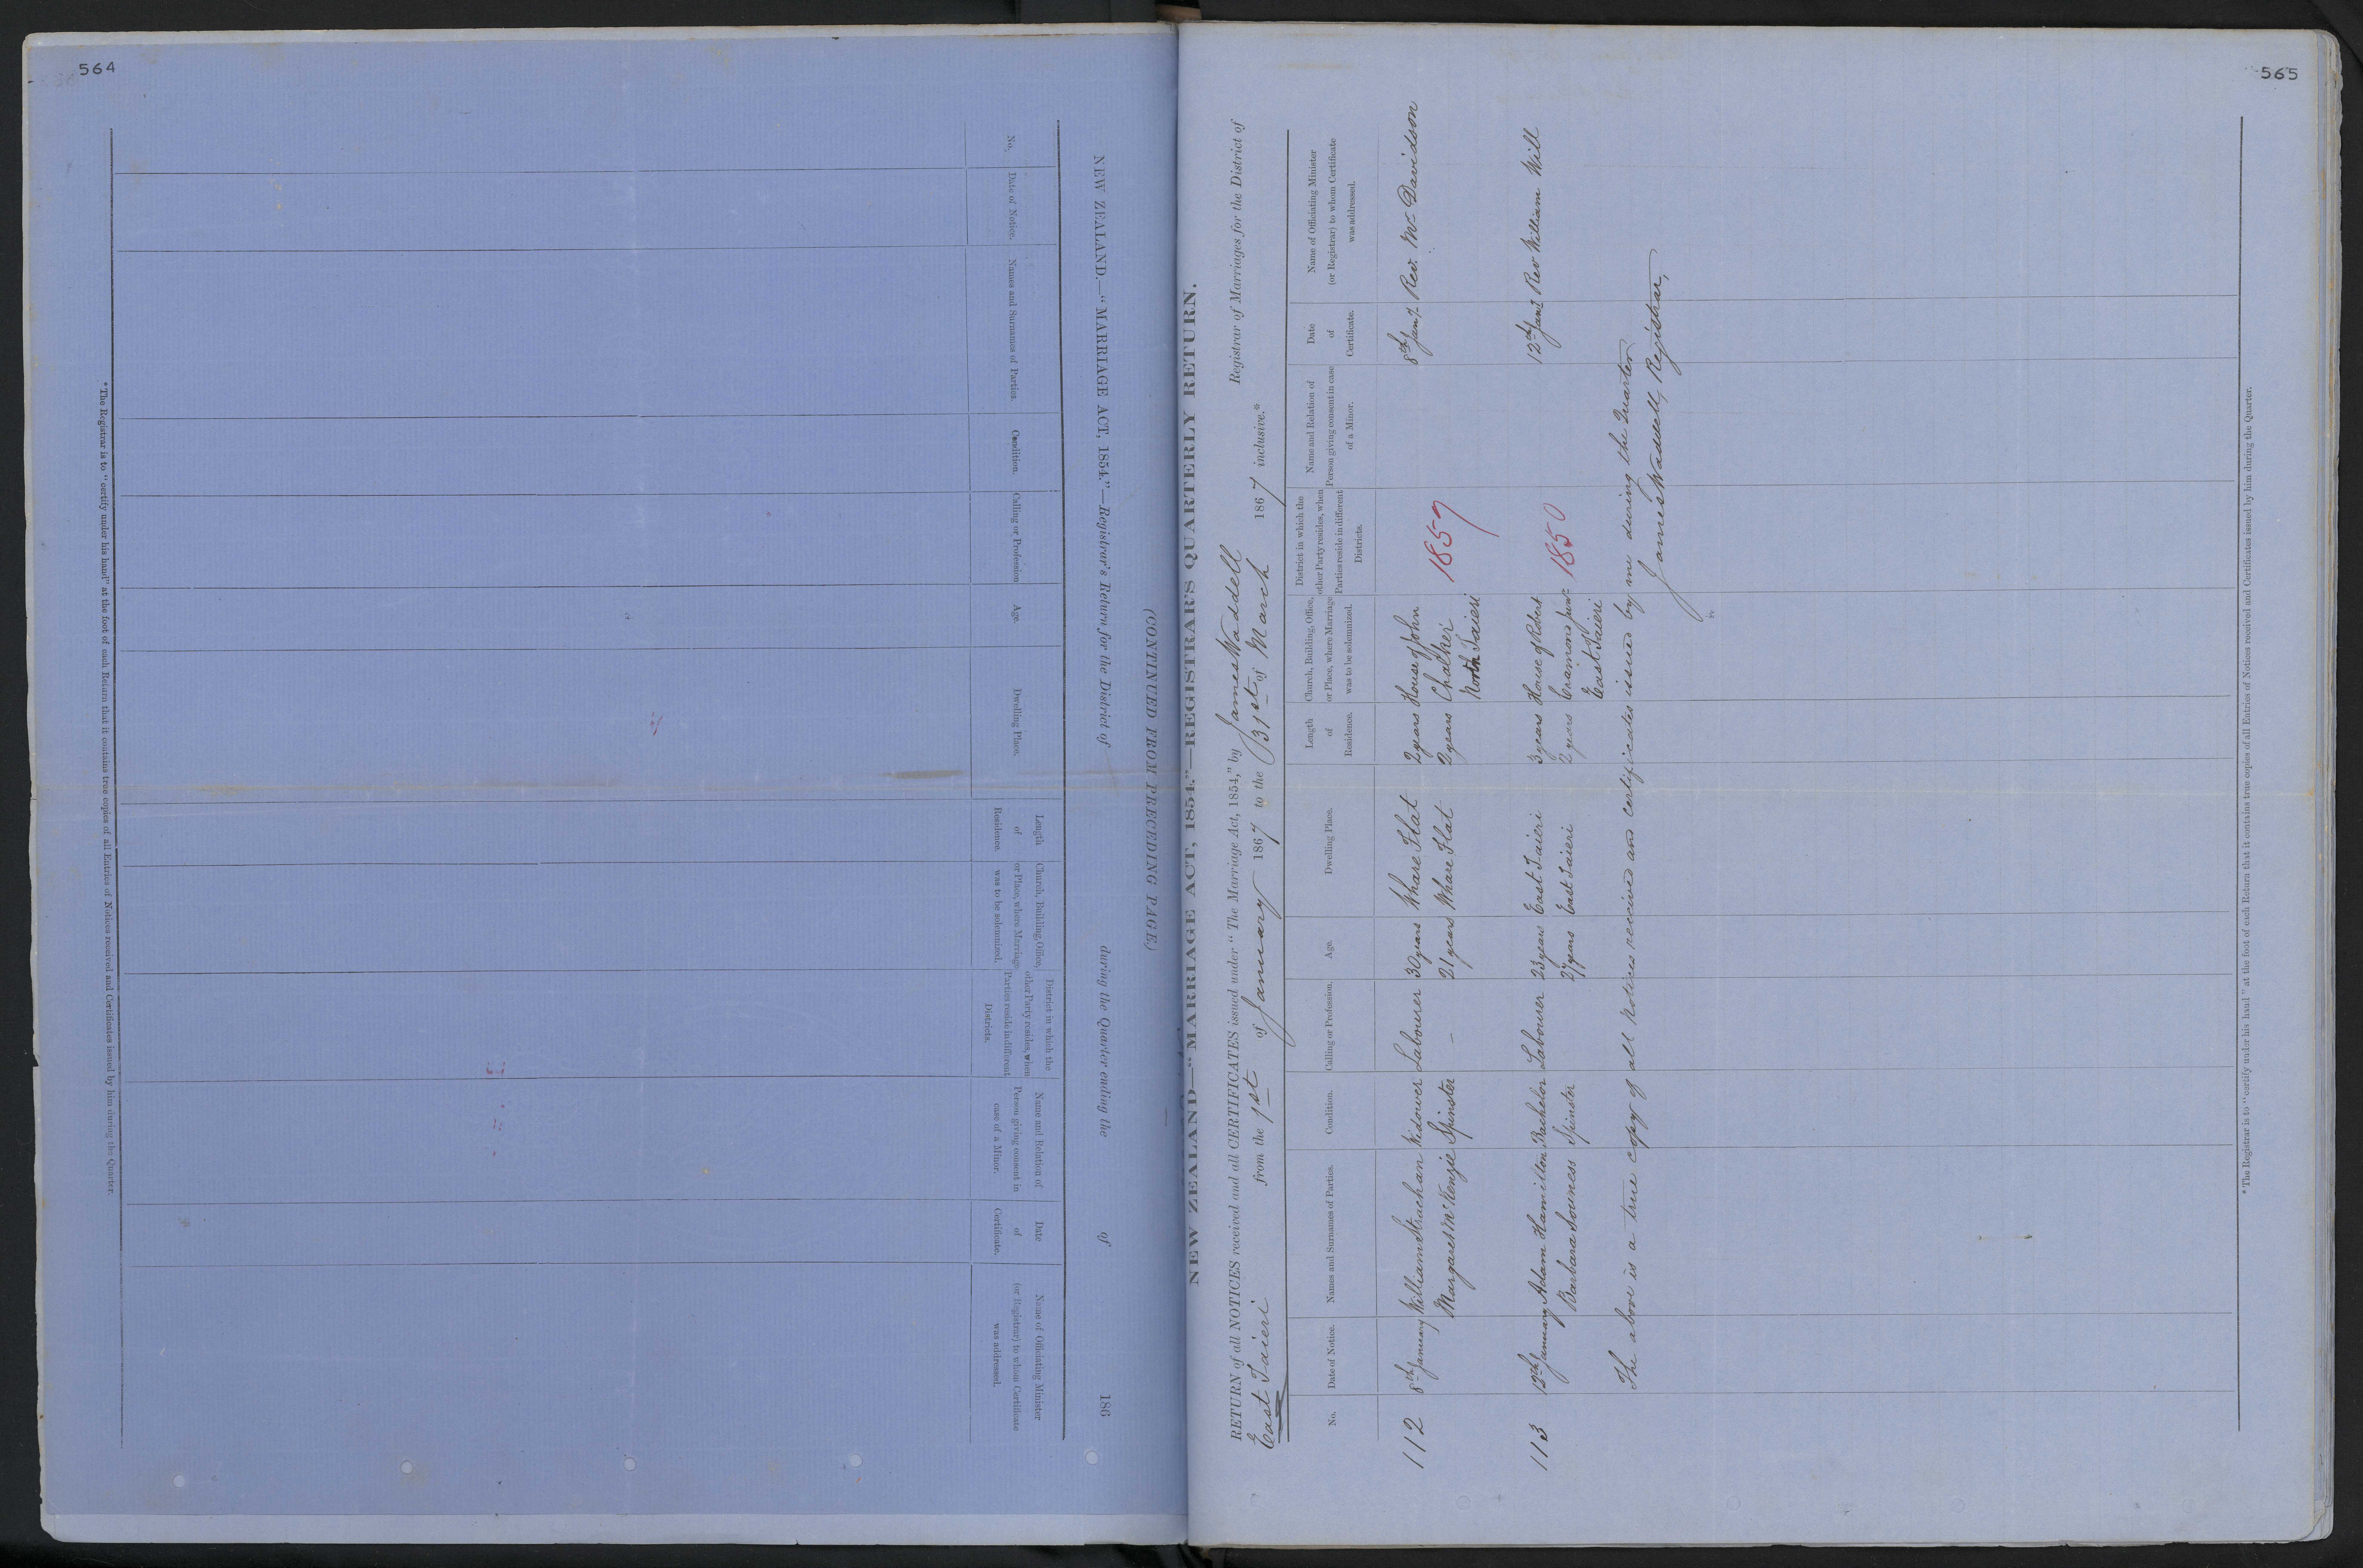 564
(CONTINUED FROM PRECEDING PAGE.)
NEW ZEALAND.—"MARRIAGE ACT, 1854."—Registrar's Return for the District of during the Quarter ending the of 186
No.
Date of Notice.
Names and Surnames of Parties.
Condition.
Calling or Profession
Age.
Dwelling Place.
Length
of
Residence.
Church, Building, Office,
or Place, where Marriage
was to be solemnized.
District in which the
other Party resides, when
Parties reside in different
Districts.
Name and Relation of
Person giving consent in
case of a Minor.
Date
of
Certificate.
Name of Officiating Minister
(or Registrar) to whom Certificate
was addressed.
*The Registrar is to "certify under his hand" at the foot of each Return that it contains true copies of all Entries of Notices received and Certificates issued by him during the Quarter.
565
NEW ZEALAND—"MARRIAGE ACT, 1854."—REGISTRAR'S QUARTERLY RETURN.
RETURN of all NOTICES received and all CERTIFICATES issued under "The Marriage Act, 1854," by James Waddell Registrar of Marriages for the District of
East Taieri from the 1st of January 1867 to the 31st of March 1867 inclusive.*
No.
Date of Notice.
Names and Surnames of Parties.
Condition.
Calling or Profession.
Age.
Dwelling Place.
Length
of
Residence.
Church, Building, Office,
or Place, where Marriage
was to be solemnized.
District in which the
other Party resides, when
Parties reside in different
Districts.
Name and Relation of
Person giving consent in case
of a Minor.
Date
of
Certificate.
Name of Officiating Minister
(or Registrar) to whom Certificate
was addressed.
112 8th January William Strachan Widower Labourer 30 years Whare Flat 2 years House of John 8th Jany Rev. Mr Davidson
Margaret McKenzie Spinster – 21 years Whare Flat 2 years Chalker 1857
North Taieri
113 12th January Adam Hamilton Bachelor Labourer 23 years East Taieri 3 years House of Robert 12th Jany Rev William Will
Barbara Souness Spinster 27 years East Taieri 2 years Craimond Junr 1850
East Taieri
The above is a true copy of all Notices received and certificates issued by me during the Quarter
James Waddell, Registrar,
*The Registrar is to "certify under his hand" at the foot of each Return that it contains true copies of all Entries of Notices received and Certificates issued by him during the Quarter.